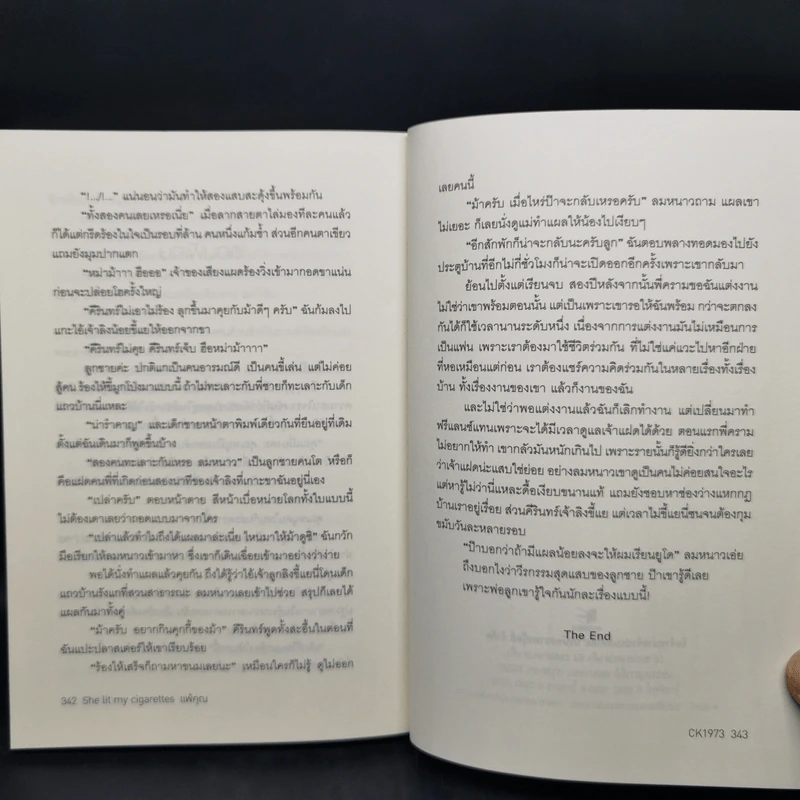 "!.../!..." แน่นอนว่ามันทำให้สองแสบสะดุ้งขึ้นพร้อมกัน
"ทั้งสองคนเลยเหรอเนี่ย" เมื่อลากสายตาไล่มองทีละคนแล้ว
ก็ได้แต่กรีดร้องในใจเป็นรอบที่ล้าน คนหนึ่งแก้มช้ำ ส่วนอีกคนตาเขียว
แถมยังมุมปากแตก
"หม่าม้าาา ฮือออ" เจ้าของเสียงแผดร้องวิ่งเข้ามากอดขาแน่น
ก่อนจะปล่อยโฮครั้งใหญ่
"คีรินทร์ไม่เอาไม่ร้อง ลุกขึ้นมาคุยกับม้าดีๆ ครับ" ฉันก้มลงไป
แกะไอ้เจ้าลิงน้อยขี้แยให้ออกจากขา
"คีรินทร์ไม่คุย คีรินทร์เจ็บ ฮือหม่าม้าาาา"
ลูกชายค่ะ ปกติแกเป็นคนอารมณ์ดี เป็นคนขี้เล่น แต่ไม่ค่อย
สู้คน ร้องไห้ขี้มูกโป่งมาแบบนี้ ถ้าไม่ทะเลาะกับพี่ชายก็ทะเลาะกับเด็ก
แถวบ้านนี่แหละ
"น่ารำคาญ" และเด็กชายหน้าตาพิมพ์เดียวกันที่ยืนอยู่ที่เดิม
ตั้งแต่ฉันเดินมาก็พูดขึ้นบ้าง
"สองคนทะเลาะกันเหรอ ลมหนาว" เป็นลูกชายคนโต หรือก็
คือแฝดคนพี่ที่เกิดก่อนสองนาทีของเจ้าลิงที่เกาะขาฉันอยู่นี่เอง
"เปล่าครับ" ตอบหน้าตาย สีหน้าเบื่อหน่ายโลกทั้งใบแบบนี้
ไม่ต้องเดาเลยว่าถอดแบบมาจากใคร
"เปล่าแล้วทำไมถึงได้แผลมาล่ะเนี่ย ไหนมาให้ม้าดูซิ" ฉันกวัก
มือเรียกให้ลมหนาวเข้ามาหา ซึ่งเขาก็เดินเฉื่อยเข้ามาอย่างว่าง่าย
พอได้นั่งทำแผลแล้วคุยกัน ถึงได้รู้ว่าไอ้เจ้าลูกลิงขี้แยนี่โดนเด็ก
แถวบ้านรังแกที่สวนสาธารณะ ลมหนาวเลยเข้าไปช่วย สรุปก็เลยได้
แผลกันมาทั้งคู่
"ม้าครับ อยากกินคุกกี้ของม้า" คีรินทร์พูดทั้งสะอื้นในตอนที่
ฉันแปะปลาสเตอร์ให้เขาเรียบร้อย
"ร้องไห้เสร็จก็ถามหาขนมเลยนะ" เหมือนใครก็ไม่รู้ ดูไม่ออก
342 She lit my cigarettes แพ้คุณ
เลยคนนี้
"ม้าครับ เมื่อไหร่ป๊าจะกลับเหรอครับ" ลมหนาวถาม แผลเขา
ไม่เยอะ ก็เลยนั่งดูแม่ทำแผลให้น้องไปเงียบๆ
"อีกสักพักก็น่าจะกลับนะครับลูก" ฉันตอบพลางทอดมองไปยัง
ประตูบ้านที่อีกไม่กี่ชั่วโมงก็น่าจะเปิดออกอีกครั้งเพราะเขากลับมา
ย้อนไปตั้งแต่เรียนจบ สองปีหลังจากนั้นพี่ครามขอฉันแต่งงาน
ไม่ใช่ว่าเขาพร้อมตอนนั้น แต่เป็นเพราะเขารอให้ฉันพร้อม กว่าจะตกลง
กันได้ก็ใช้เวลานานระดับหนึ่ง เนื่องจากการแต่งงานมันไม่เหมือนการ
เป็นแฟน เพราะเราต้องมาใช้ชีวิตร่วมกัน ที่ไม่ใช่แค่แวะไปหาอีกฝ่าย
ที่หอเหมือนแต่ก่อน เราต้องแชร์ความคิดร่วมกันในหลายเรื่องทั้งเรื่อง
บ้าน ทั้งเรื่องงานของเขา แล้วก็งานของฉัน
และไม่ใช่ว่าพอแต่งงานแล้วฉันก็เลิกทำงาน แต่เปลี่ยนมาทำ
ฟรีแลนซ์แทนเพราะจะได้มีเวลาดูแลเจ้าแฝดได้ด้วย ตอนแรกพี่คราม
ไม่อยากให้ทำ เขากลัวมันหนักเกินไป เพราะรายนั้นก็รู้ดียิ่งกว่าใครเลย
ว่าเจ้าแฝดน่ะแสบใช่ย่อย อย่างลมหนาวเขาดูเป็นคนไม่ค่อยสนใจอะไร
แต่หารู้ไม่ว่านี่แหละดื้อเงียบขนานแท้ แถมยังชอบหาช่องว่างแหกกฎ
บ้านเราอยู่เรื่อย ส่วนคีรินทร์เจ้าลิงขี้แย แต่เวลาไม่ขี้แยนี่ซนจนต้องกุม
ขมับวันละหลายรอบ
"ป๊าบอกว่าถ้ามีแผลน้อยลงจะให้ผมเรียนยูโด" ลมหนาวเอ่ย
ถึงบอกไงว่าวีรกรรมสุดแสบของลูกชาย ป๊าเขารู้ดีเลย
เพราะพ่อลูกเขารู้ใจกันนักละเรื่องแบบนี้!
The End
CK1973 343